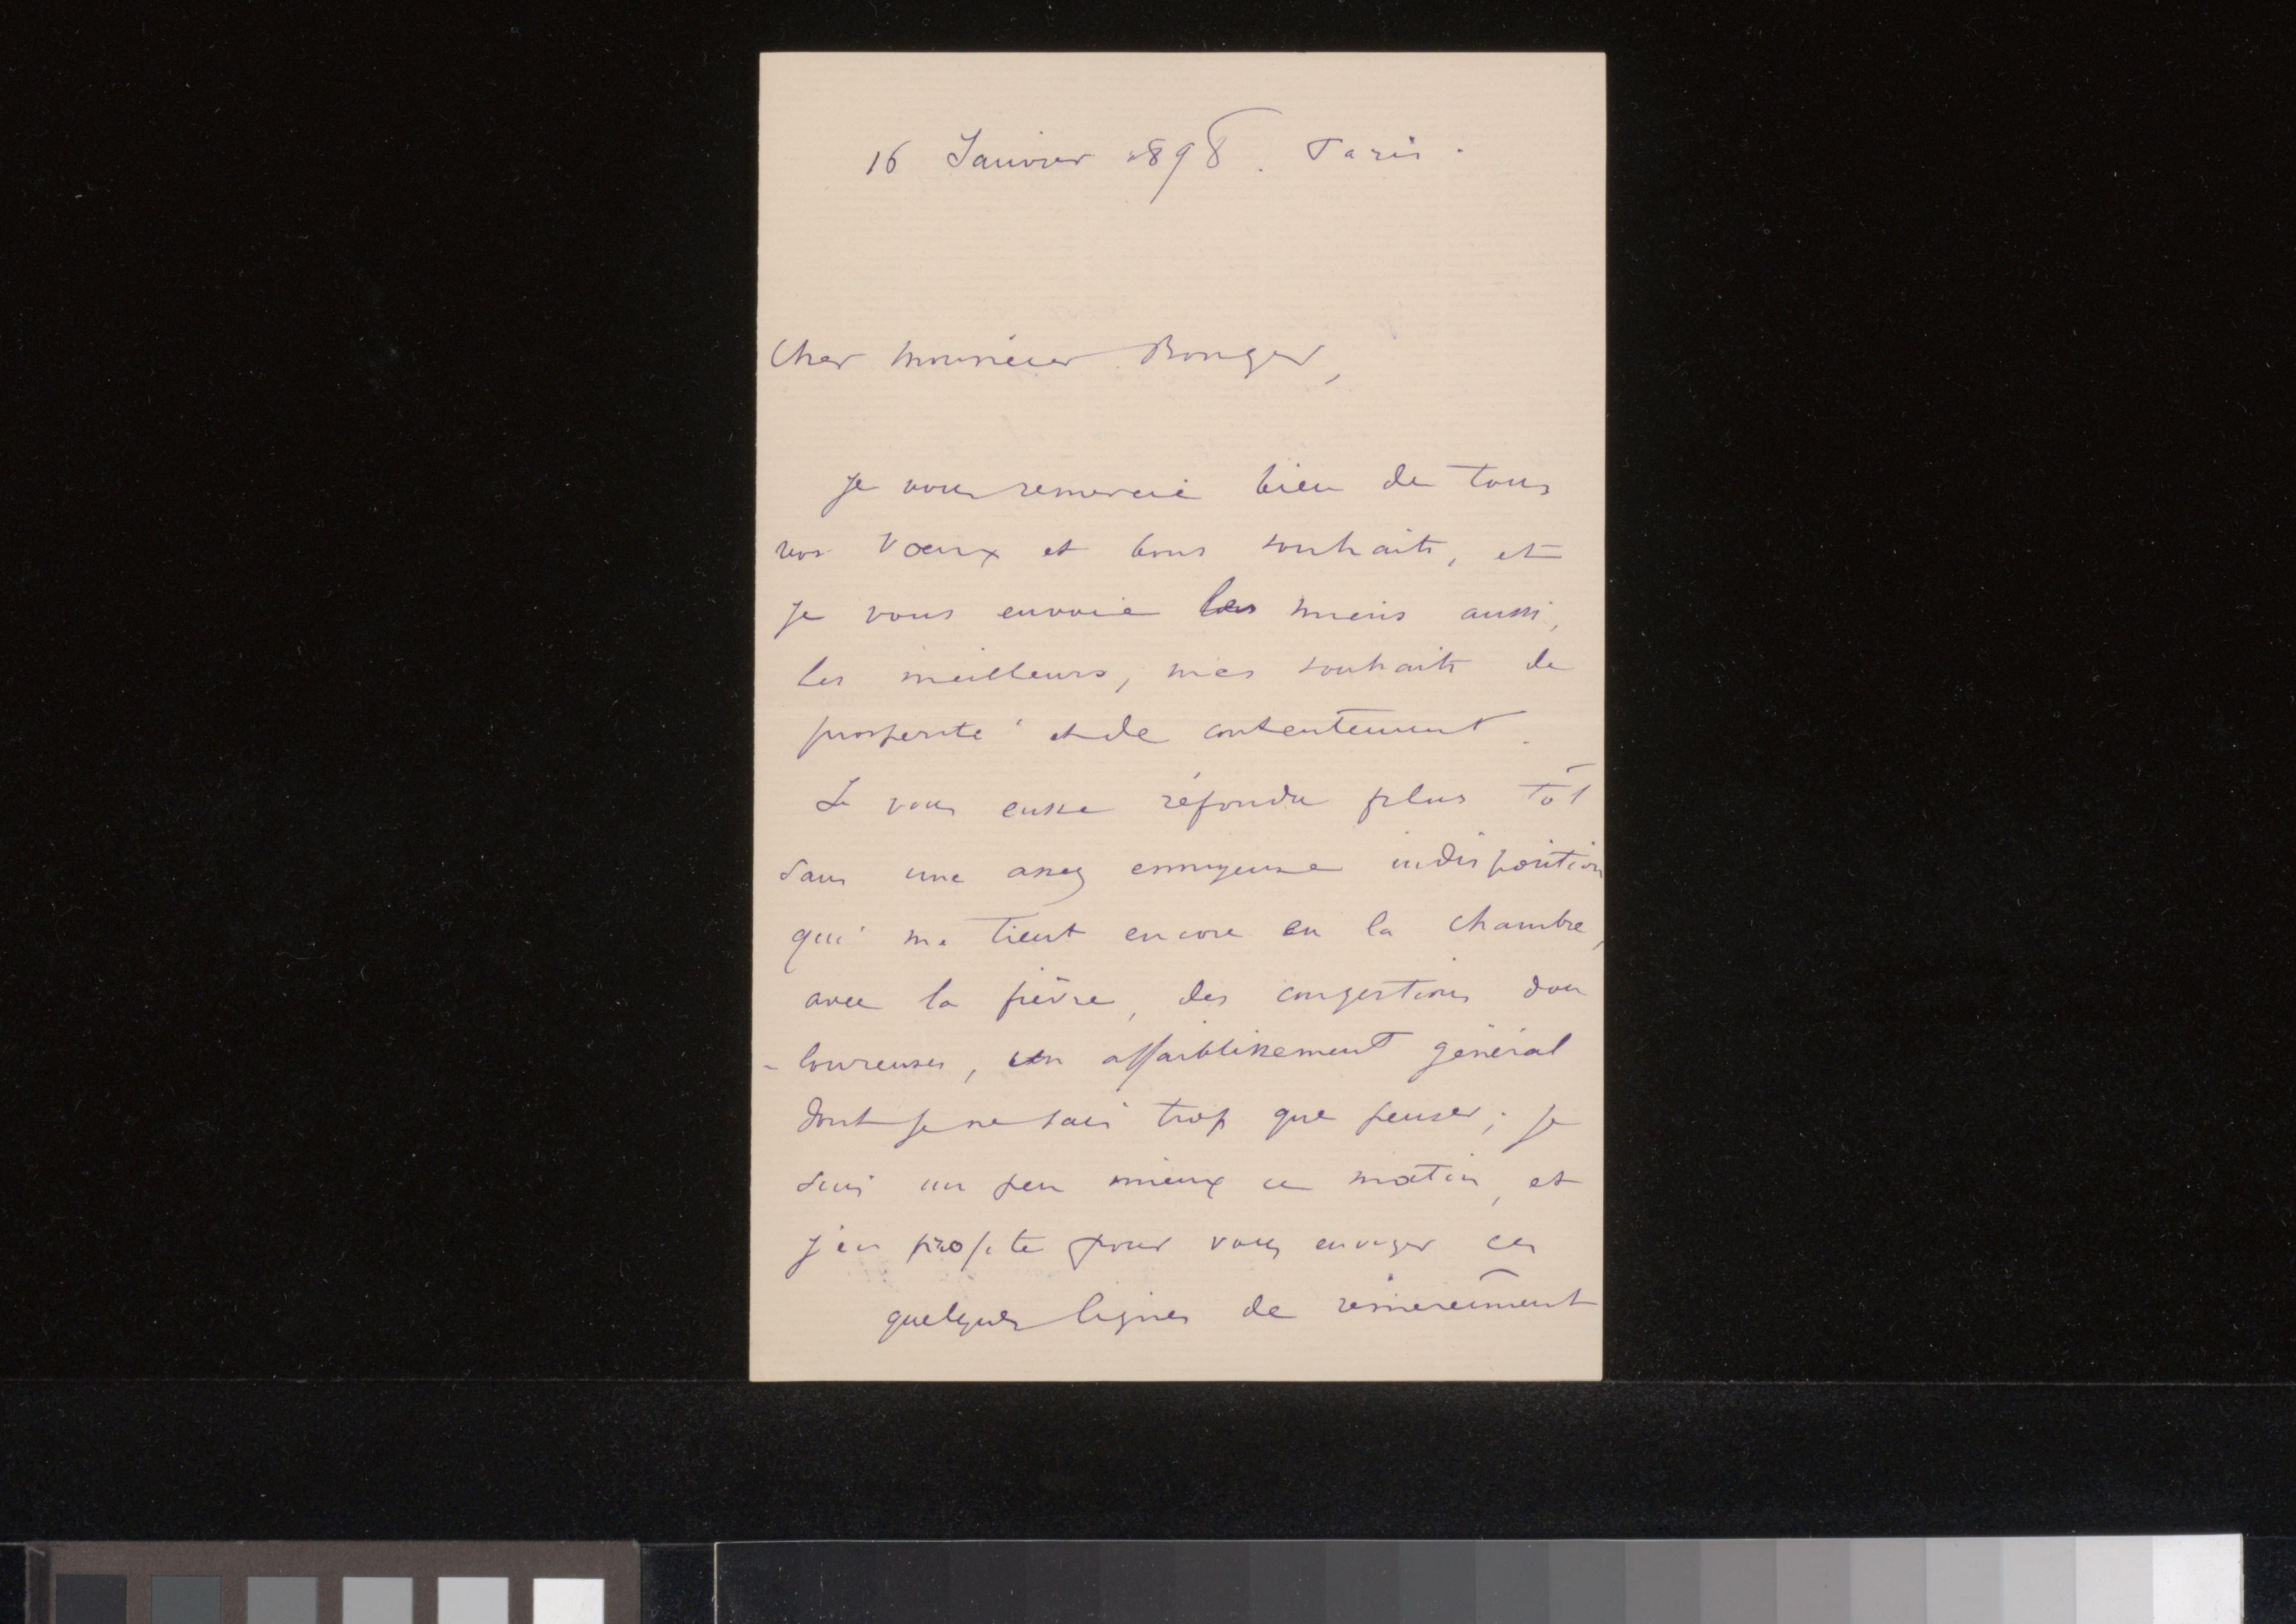 16 Janvier 1898. Paris.
Cher Monsieur Bonger,
Je vous remercie bien de tous
vos vœux et bons souhaits, et
je vous envoie les miens aussi,
les meilleurs, mes souhaits de
prosperité et de contentement.
Je vous eusse répondu plus tôt
sans une assez ennuyeuse indisposition
qui me tient encore en la chambre,
avec la fièvre, des congestions dou
-loureuses, un affaiblissement général
dont je ne sais trop que penser; je
suis un peu mieux ce matin, et
j'en profite pour vous envoyer ces
quelques lignes de remerciment